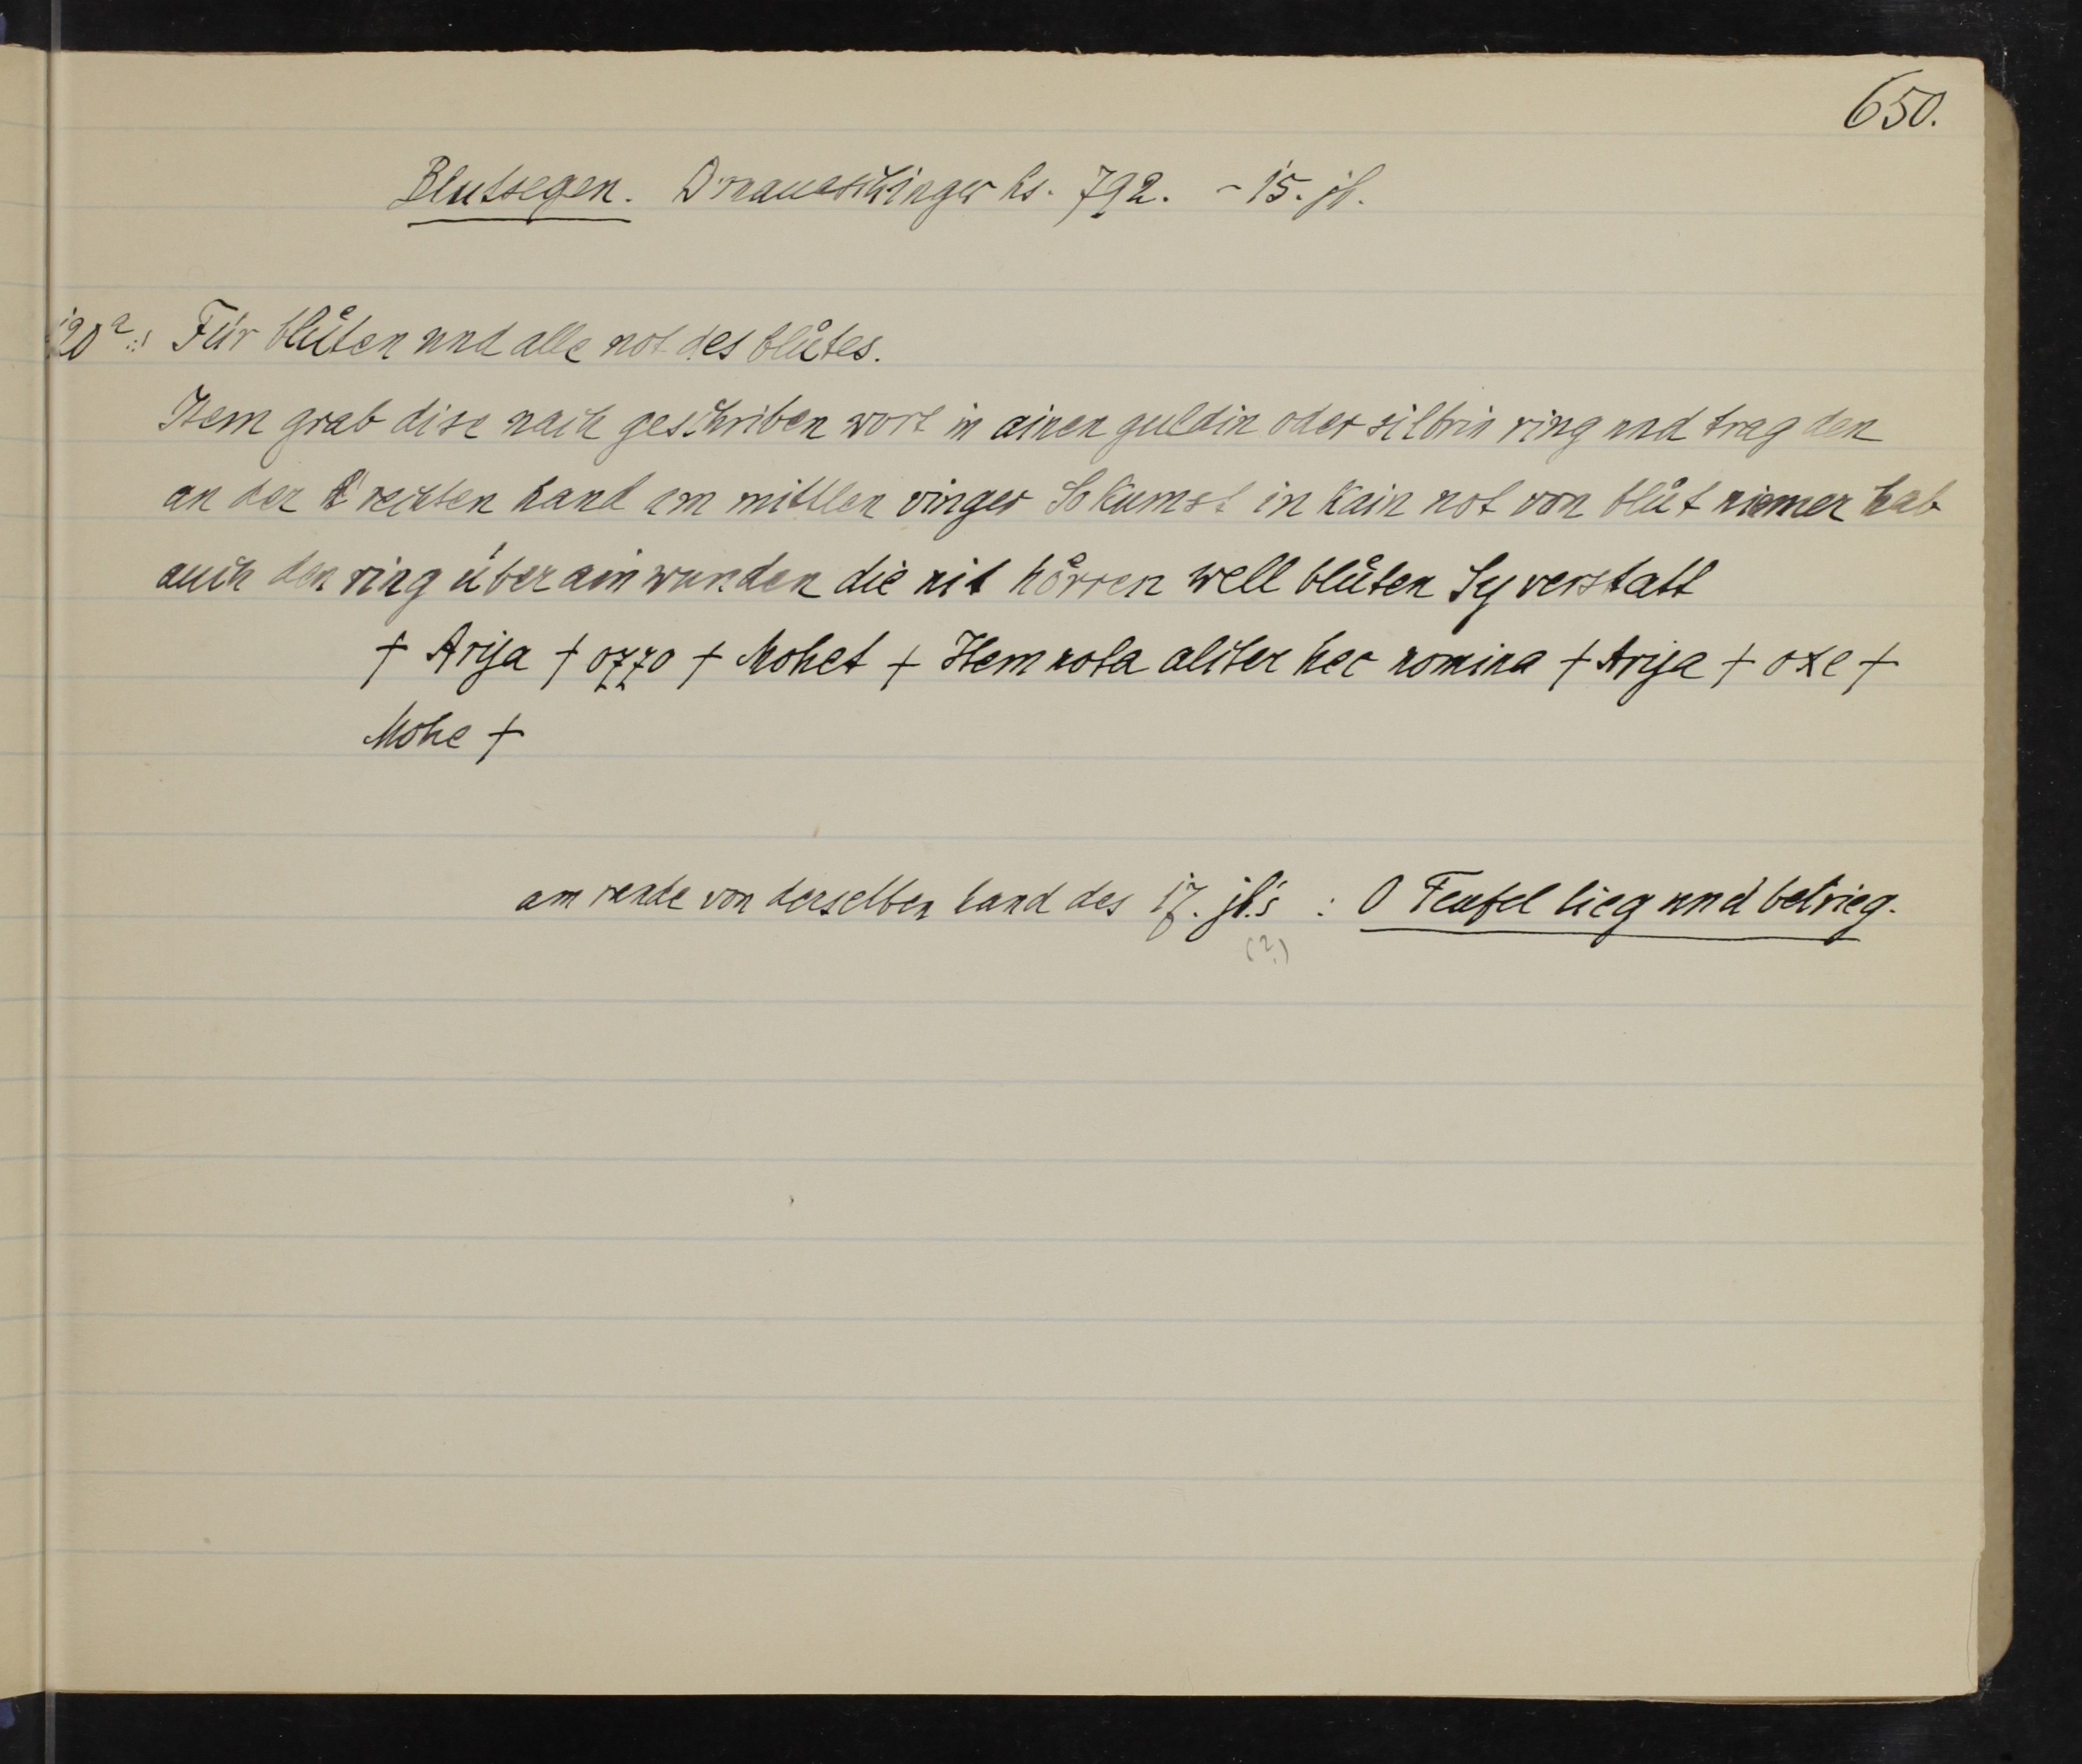 650.
Blutsegen. Donaueschinger hs. 792. – 15. jh.
120ᵃ: Für blůten und alle not des blůtes.
Item grab dise nach geschriben wort in ainen guldin oder silbrin ring und trag den
an der rechten hand am mittlen vinger So kumst in kain not von blůt niemer hab
auch den ring über ain wunden die nit hören well blůten Sy verstatt
† Arija † 0770 † Mohet † Item nota aliter hec nomina † Arija † oxe †
Mohe †
am rande von derselben hand des 17. jh.'s : O Teufel lieg und betrieg.
(?)